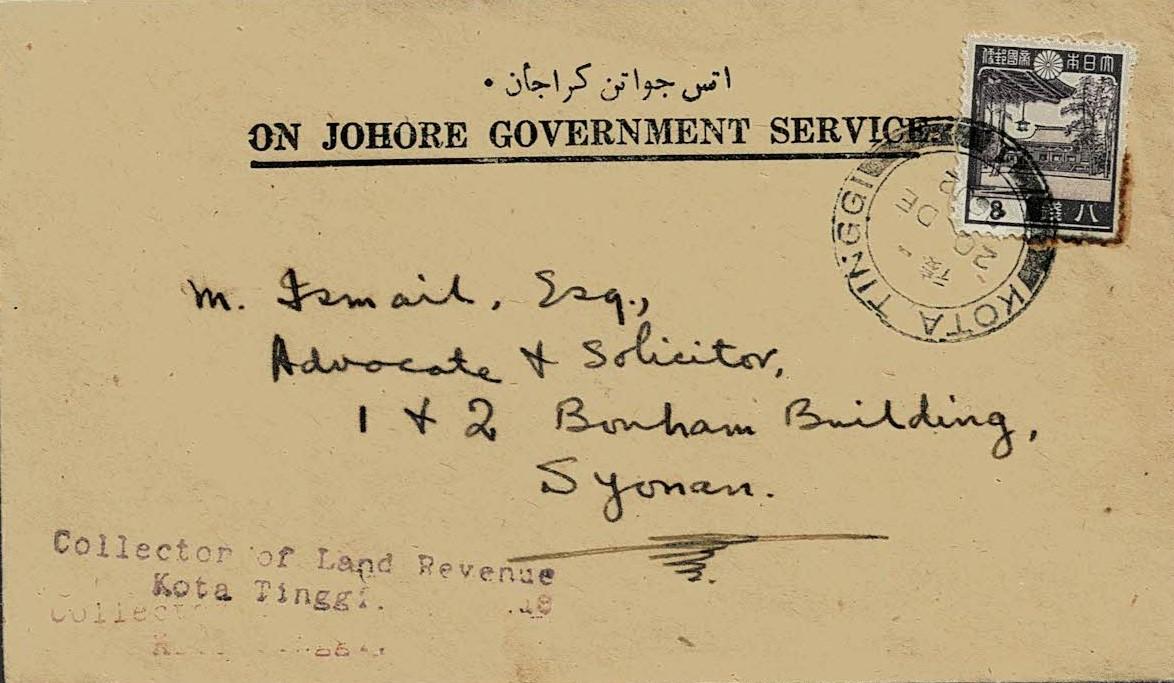 اتس جواتن كراجأن •
ON JOHORE GOVERNMENT SERVICE.
大日本帝國郵便
8 八錢
KOTA TINGGI
20 DE
M. Ismail, Esq.,
Advocate & Solicitor,
1 & 2 Bonham Building,
Syonan.
Collector of Land Revenue
Kota Tinggi.
Collect